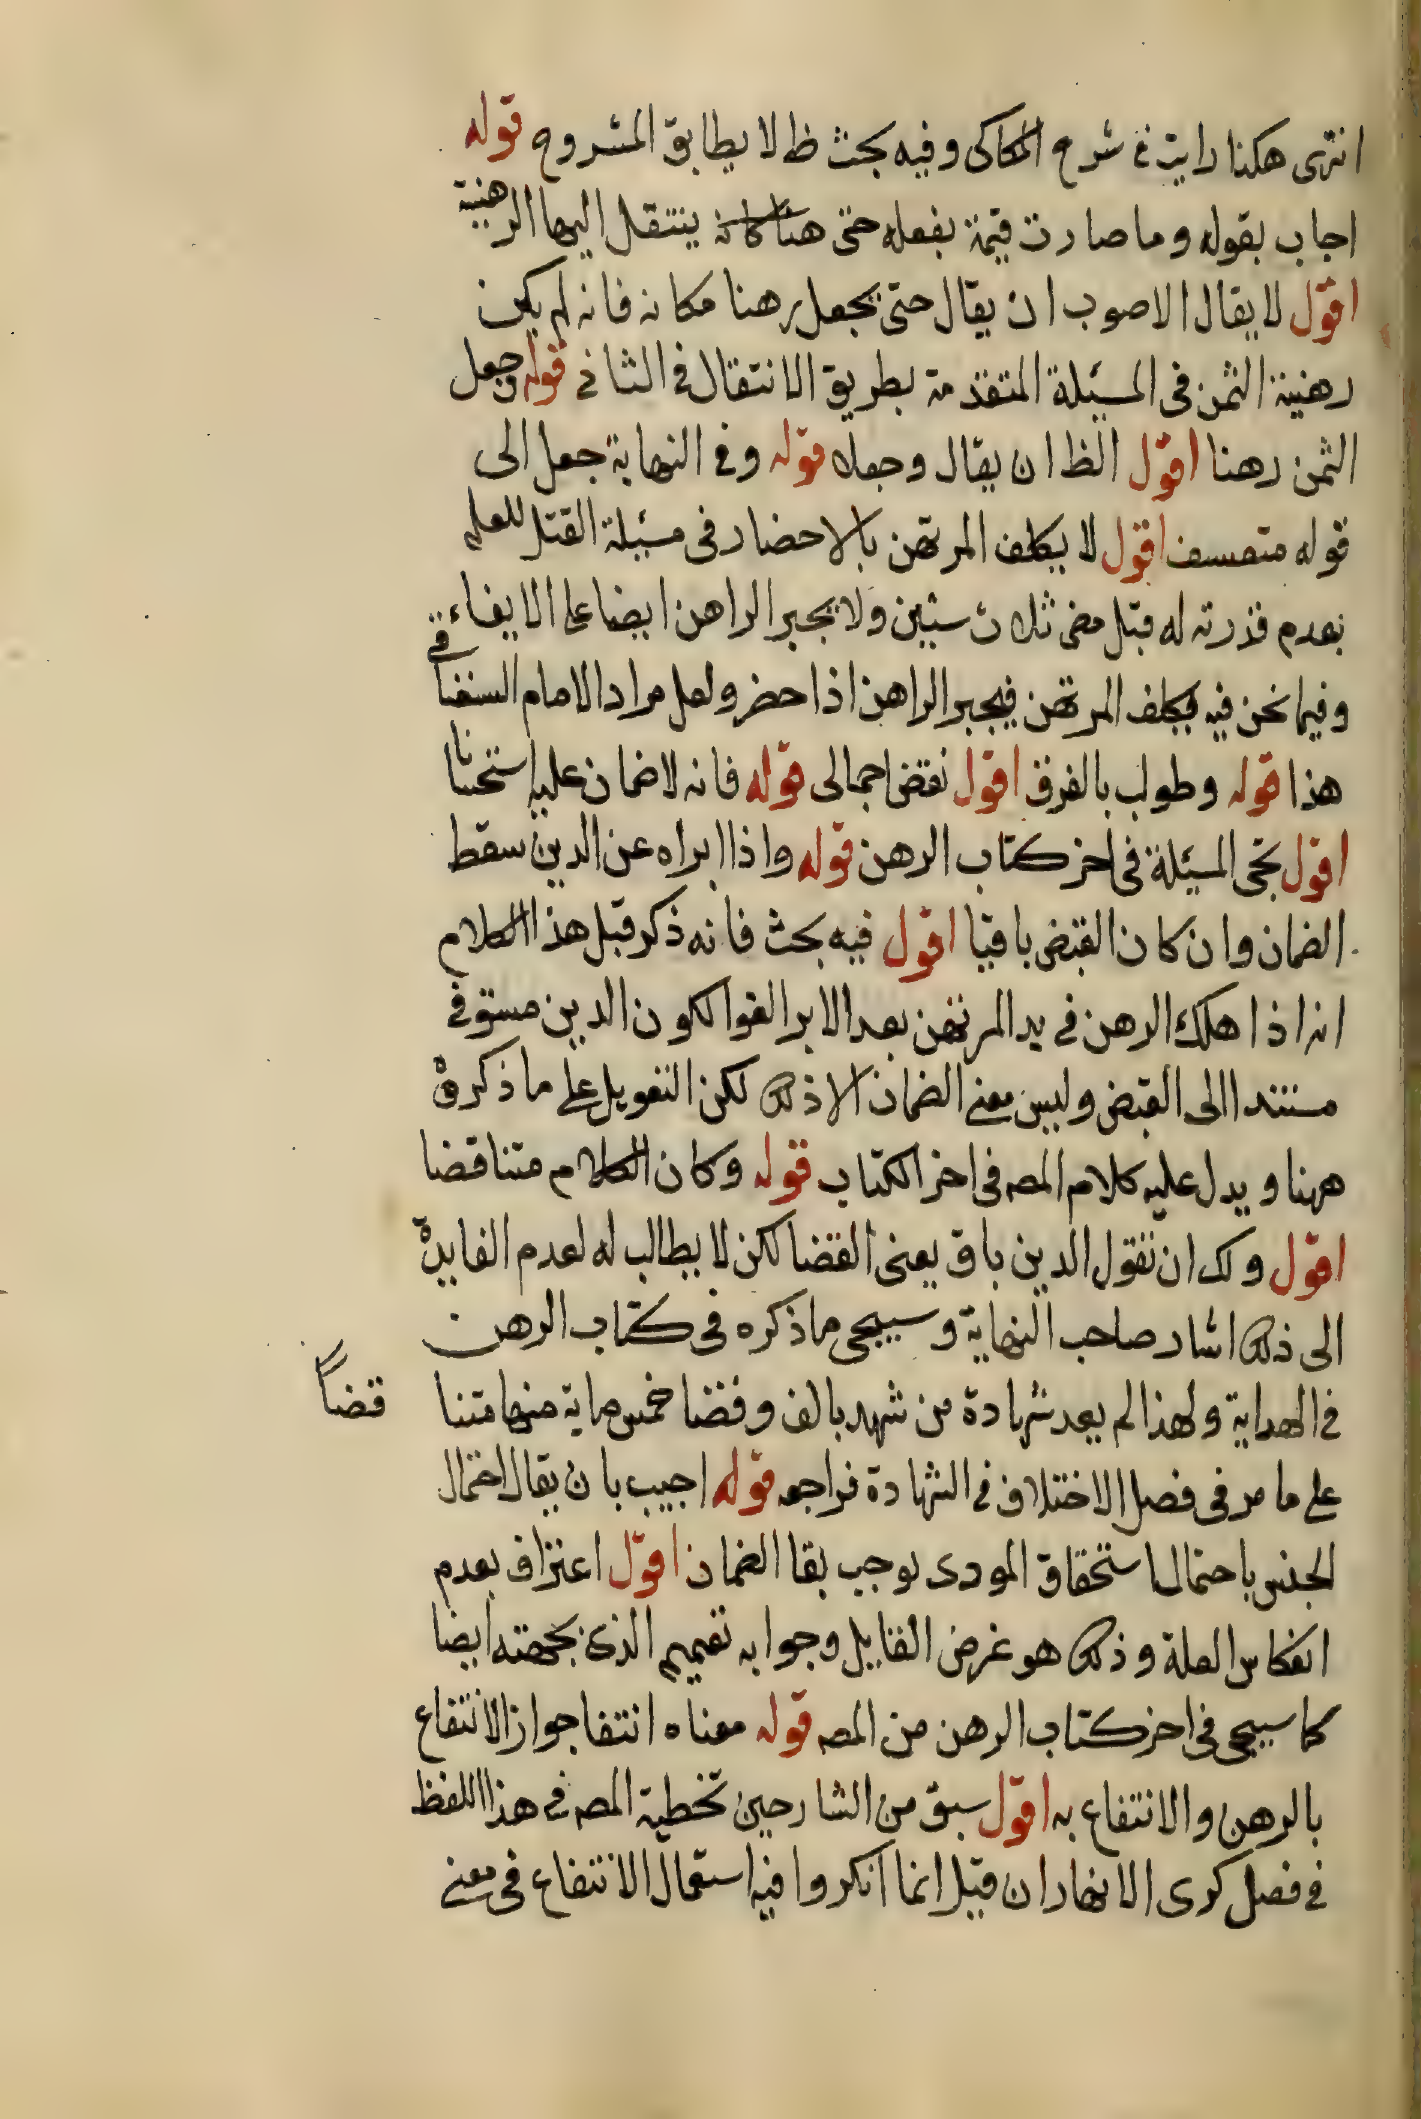 انتهى هكذا رايت فى شرح الكاكى وفيه بحث ظ لا يطابق المشروح قوله
اجاب بقوله وما صارت قيمة بفعله حتى هنا كانه ينتقل اليها الرهنية
اقول لا يقال الاصوب ان يقال حتى يجعل رهنا مكانه فانه لم يكن
رهنية الثمن فى المسئلة المتقدمة بطريق الانتقال فى الثانى قوله وجعل
الثمن رهنا اقول الظ ان يقال وجعله قوله وفى النهاية جعل الى
قوله متعسف اقول لا يكلف المرتهن بالاحضار فى مسئلة القتل للعلم
بعدم قدرته له قبل مضى ثلاث سنين ولا يجبر الراهن ايضا على الايفاء
وفيما نحن فيه يكلف المرتهن فيجبر الراهن اذا حضر ولعل مراد الامام السغناقى
هذا قوله وطولب بالفرق اقول نقض اجمالى قوله فانه لا ضمان عليه استحسانا
اقول تجى المسئلة فى اخر كتاب الرهن قوله واذا ابراه عن الدين سقط
الضمان وان كان القبض باقيا اقول فيه بحث فانه ذكر قبل هذا الكلام
انه اذا هلك الرهن فى يد المرتهن بعد الابرا لغوا لكون الدين مستوفى
مستندا الى القبض وليس معنى الضمان الا ذلك لكن التعويل على ما ذكره
ههنا ويدل عليه كلام المصه فى اخر الكتاب قوله وكان الكلام متناقضا
اقول ولك ان تقول الدين باق يعنى القضا لكن لا يطالب له لعدم الفايدة
الى ذلك اشار صاحب النهاية وسيجى ما ذكره فى كتاب الرهن
فى الهداية ولهذا لم يعد شهادة من شهد بالف وقضا خمس ماية منها متنا قضاً
على ما مر فى فصل الاختلاف فى الشهادة فراجعه قوله اجيب بان يقال احتمال
الجنس باحتمال استحقاق المودى يوجب بقا الضمان اقول اعتراف بعدم
انعكاس العلة وذلك هو غرض القايل وجوابه تعميم الذى بجهته ايضا
كما سيجى فى اخر كتاب الرهن من المصه قوله معناه انتفا جواز الانتفاع
بالرهن والانتفاع به اقول سبق من الشارحين تخطية المصه فى هذا اللفظ
فى فصل كرى الانهار ان قيل انما انكروا فيه استعمال الانتفاع فى معنى